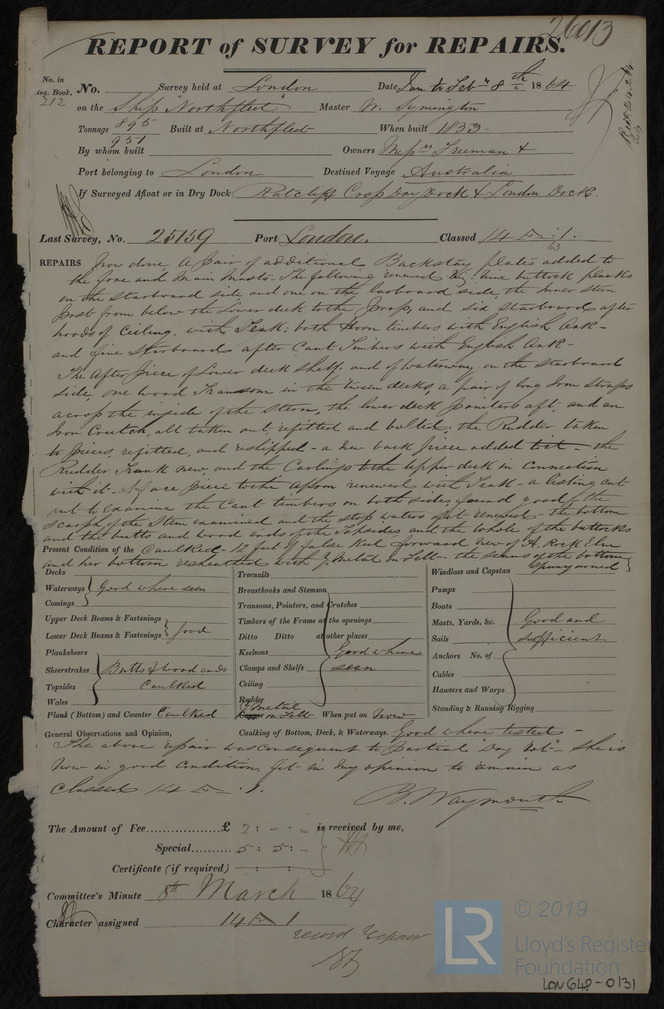 26013
REPORT of SURVEY for REPAIRS.
No. in Reg. Book, 212 No. Survey held at London Date, Jan to Feby 8th 1864
on the Ship "Northfleet" Master W. Symington
Tonnage 895 951 Built at Northfleet When built 1853
By whom built Owners Messrs Truman &
Port belonging to London Destined Voyage Australia
If Surveyed Afloat or in Dry Dock Ratcliff Cross Dry Dock & London Dock.
Last Survey, No. 25159 Port London. Classed 14 A. 1. 63
REPAIRS now done A pair of additional Backstay plates added to
the fore and main masts. The following renewed viz. nine buttock planks
on the starboard side and one on the larboard side, the inner stern
Post from below the lower deck to the Poop, and six starboard after
hoods of Ceiling, with Teak; both Horn timbers with English Oak -
and five Starboard after Cant Timbers with English Oak -
The after piece of Lower deck shelf, and of Waterway, on the Starboard
side, one wood Transom in the tween decks, a pair of long Iron Straps
across the inside of the Stern, the lower deck Pointers aft, and an
Iron Crutch, all taken out, refitted and bolted; the Rudder taken
to pieces, refitted, and reshipped - a new back piece added to it - the
Rudder Trunk new, and the Carlings to the upper deck in connection
with it - A face piece to the apron renewed with Teak - a listing cut
out to examine the Cant timbers on both sides, found good, the
scarph of the Stem examined and the stop waters renewed - the bottom
and the butts and wood ends of the topsides and the whole of the buttocks
Present Condition of the Caulked - 12 feet of false keel forward new of A. Rock Elm
and her bottom resheathed with Y. Metal on Felt - the seams of the bottom
spunyarned
Decks
Waterways
Comings
Good where seen
Upper Deck Beams & Fastenings
Lower Deck Beams & Fastenings
good
Planksheers
Sheerstrakes
Topsides
Wales
Butts & wood ends
Caulked
Plank (Bottom) and Counter Caulked
Treenails
Breasthooks and Stemson
Transoms, Pointers, and Crutches
Timbers of the Frame at the openings
Ditto Ditto at other places
Keelsons
Clamps and Shelfs
Ceiling
Rudder
Good where
seen
Y Metal
Copper on Felt When put on Now
Windlass and Capstan
Pumps
Boats
Masts, Yards, &c.
Sails
Anchors No. of
Cables
Hawsers and Warps
Standing & Running Rigging
Good and
Sufficient
General Observations and Opinion, Caulking of Bottom, Deck, & Waterways. Good where tested -
The above repair was consequent to partial "Dry Rot" - She is
now in good condition, fit in my opinion to remain as
Classed 14 A 1.
B. Waymouth
The Amount of Fee £ 2: -: - is received by me,
Special 5: 5: -
Certificate (if required) - : - : -
Committee's Minute 8th March 1864
Character assigned 14 A 1
record repair
© 2019
LR
Lloyd's Register
Foundation
LON 648-0131